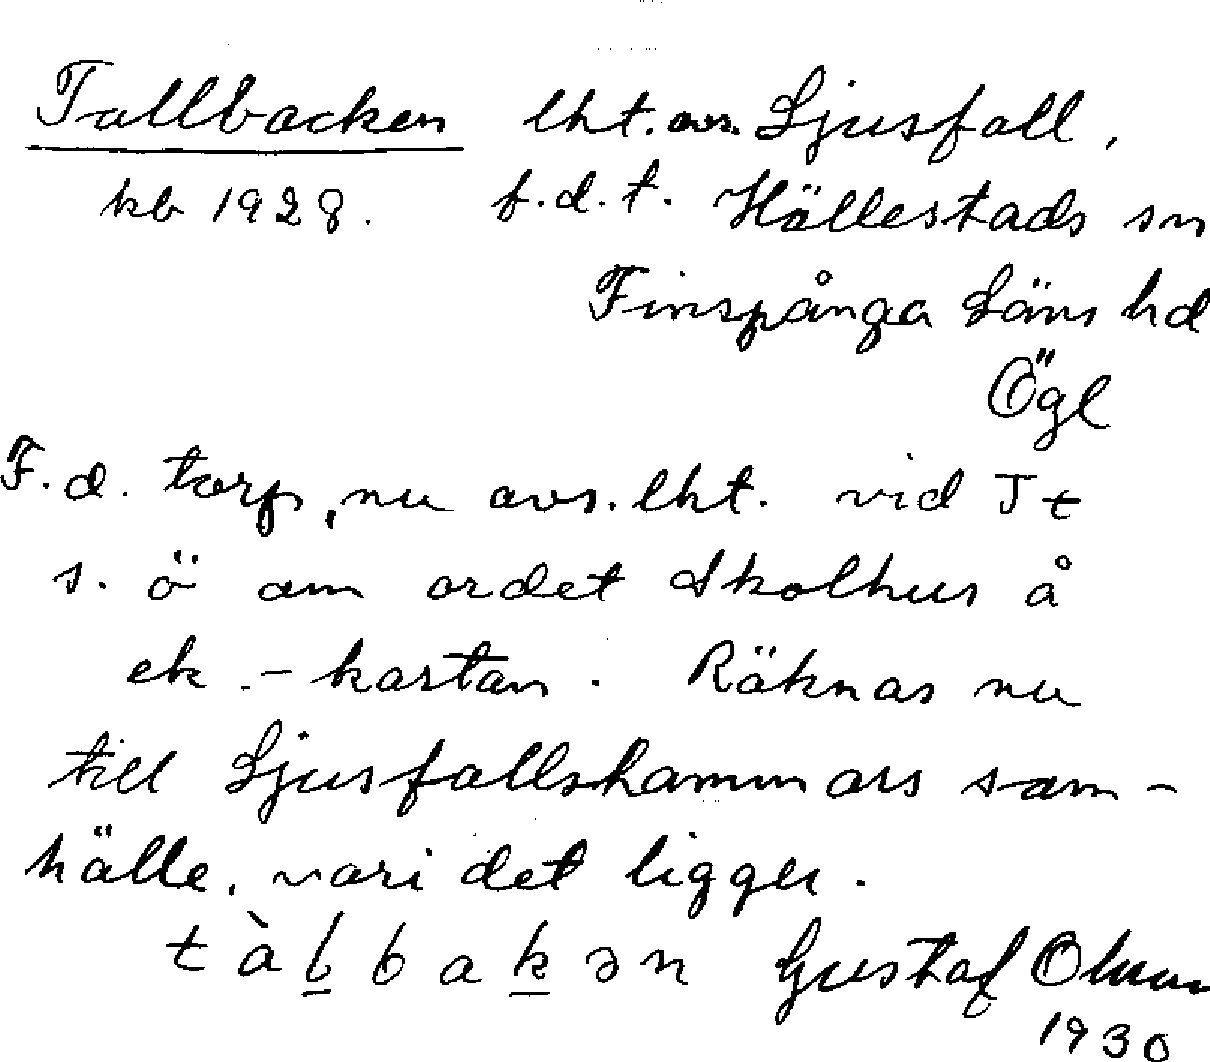 Tallbacken lht. avs. Ljusfall,
kb 1928. f.d.t. Hällestads sn
Finspånga Läns hd
Ögl
F.d. torp, nu avs. lht. vid Jt
s. ö om ordet Skolhus å
ek.-kartan. Räknas nu
till Ljusfallshammars sam-
hälle, vari det ligger.
t à l̲ b a k̲ ə n Gustaf Olson
1930